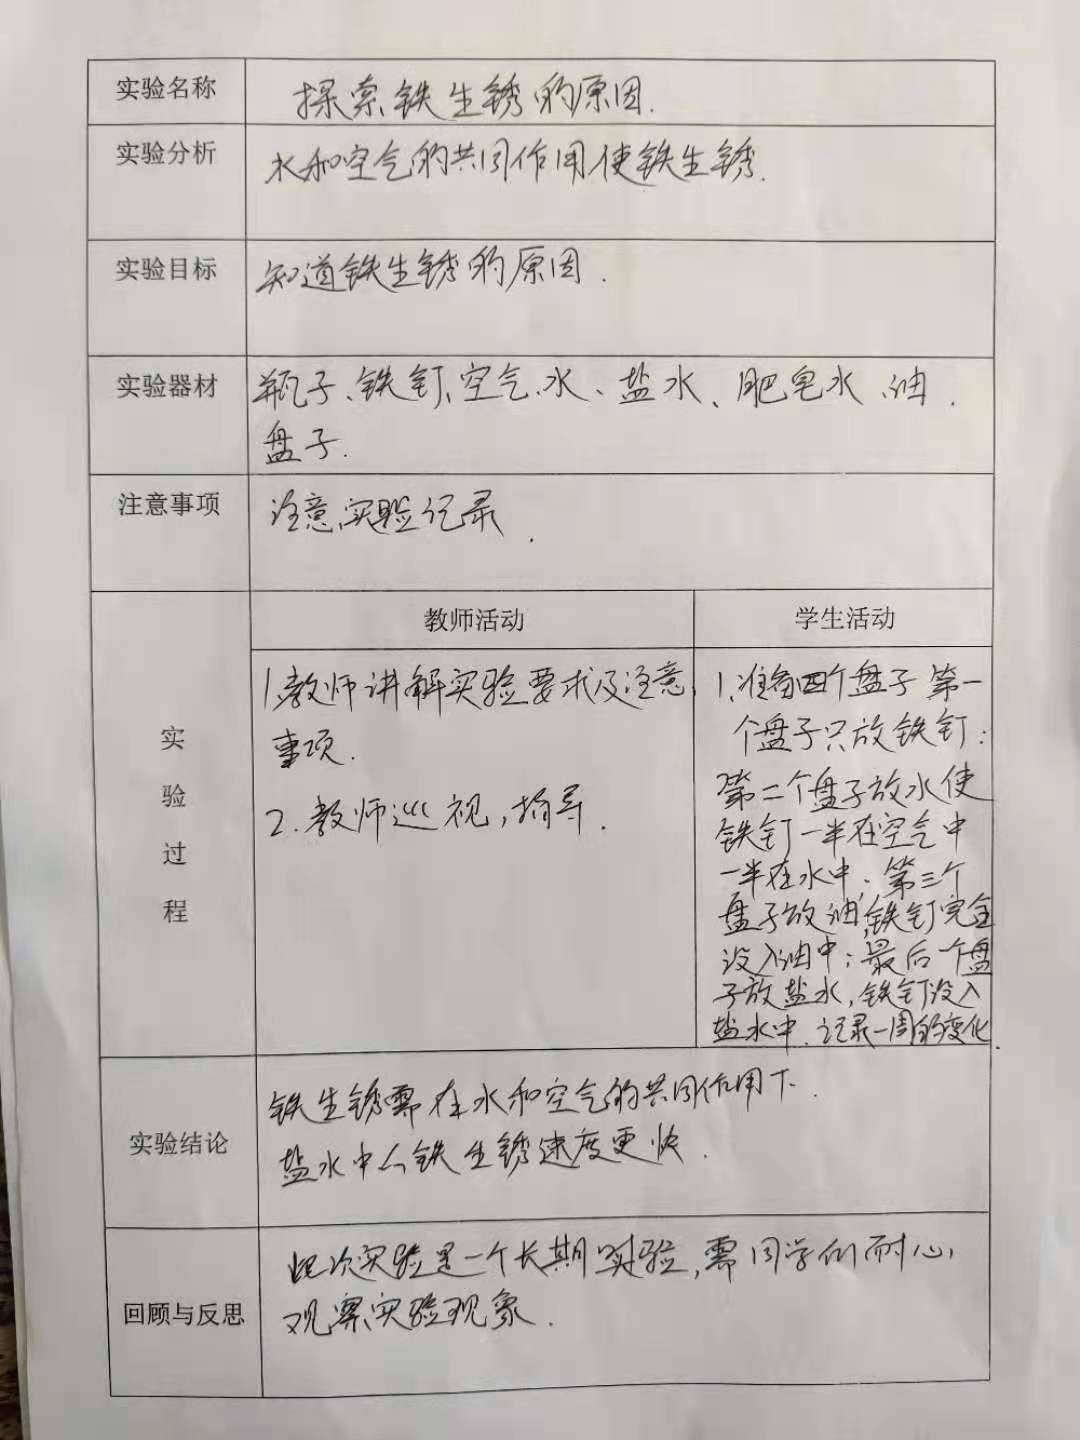 实验名称 探索铁生锈的原因.
实验分析 水和空气的共同作用使铁生锈.
实验目标 知道铁生锈的原因.
实验器材 瓶子、铁钉、空气、水、盐水、肥皂水、油.
盘子.
注意事项 注意实验记录.
教师活动 学生活动
实验过程
1.教师讲解实验要求及注意
事项.
2.教师巡视,指导.
1、准备四个盘子 第一
个盘子只放铁钉;
第二个盘子放水使
铁钉一半在空气中
一半在水中、第三个
盘子放油,铁钉完全
没入油中;最后一个盘
子放盐水,铁钉没入
盐水中.记录一周的变化.
实验结论
铁生锈需在水和空气的共同作用下.
盐水中铁生锈速度更快.
回顾与反思
此次实验是一个长期实验,需同学们耐心,
观察实验现象.